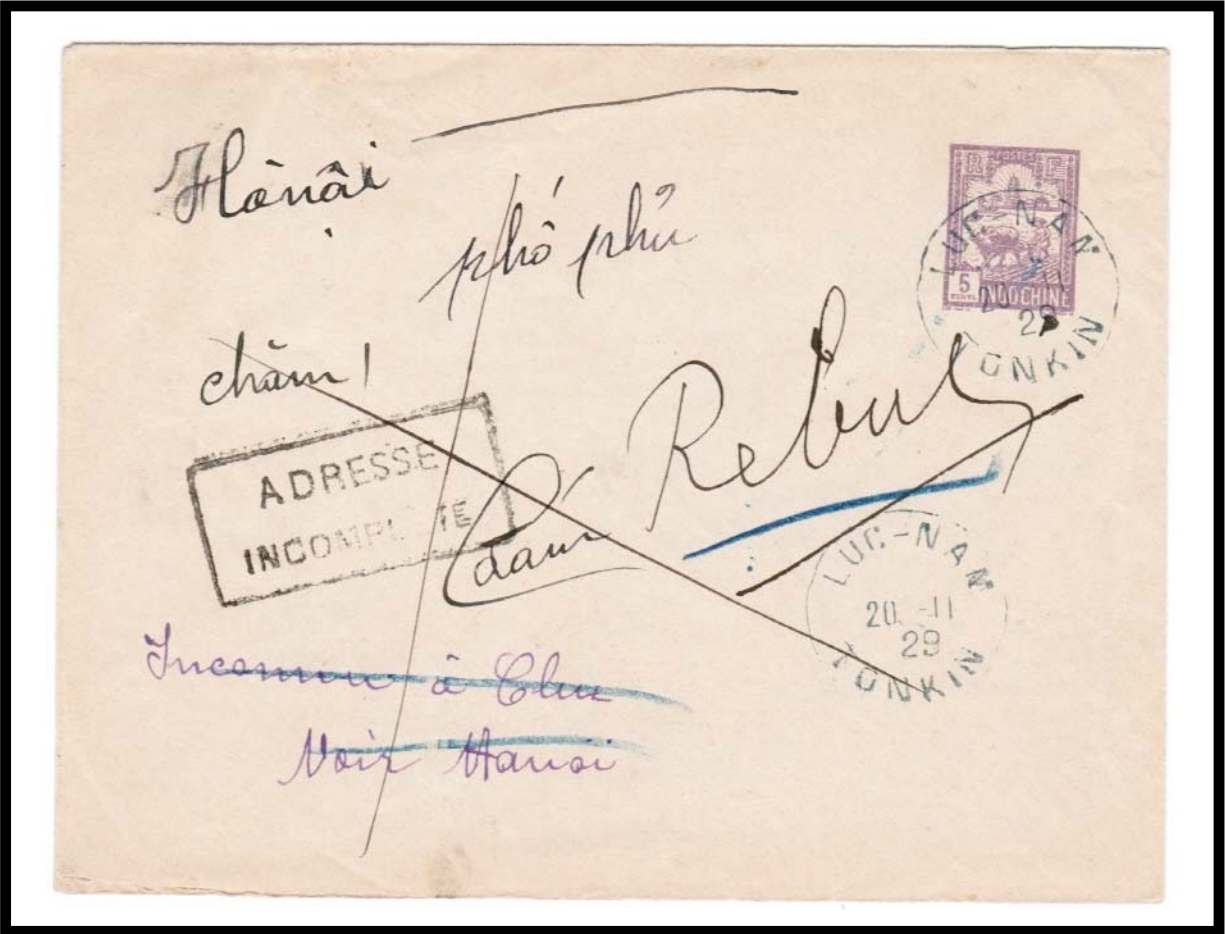 Hànội
phố phủ
R F
POSTES
5
INDOCHINE
LUC-NAM
20 -11
29
TONKIN
châm!
Rebut
ADRESSE
INCOMPLETE
LUC-NAM
20 -11
29
TONKIN
Inconnu à Chu
Voir Hanoi